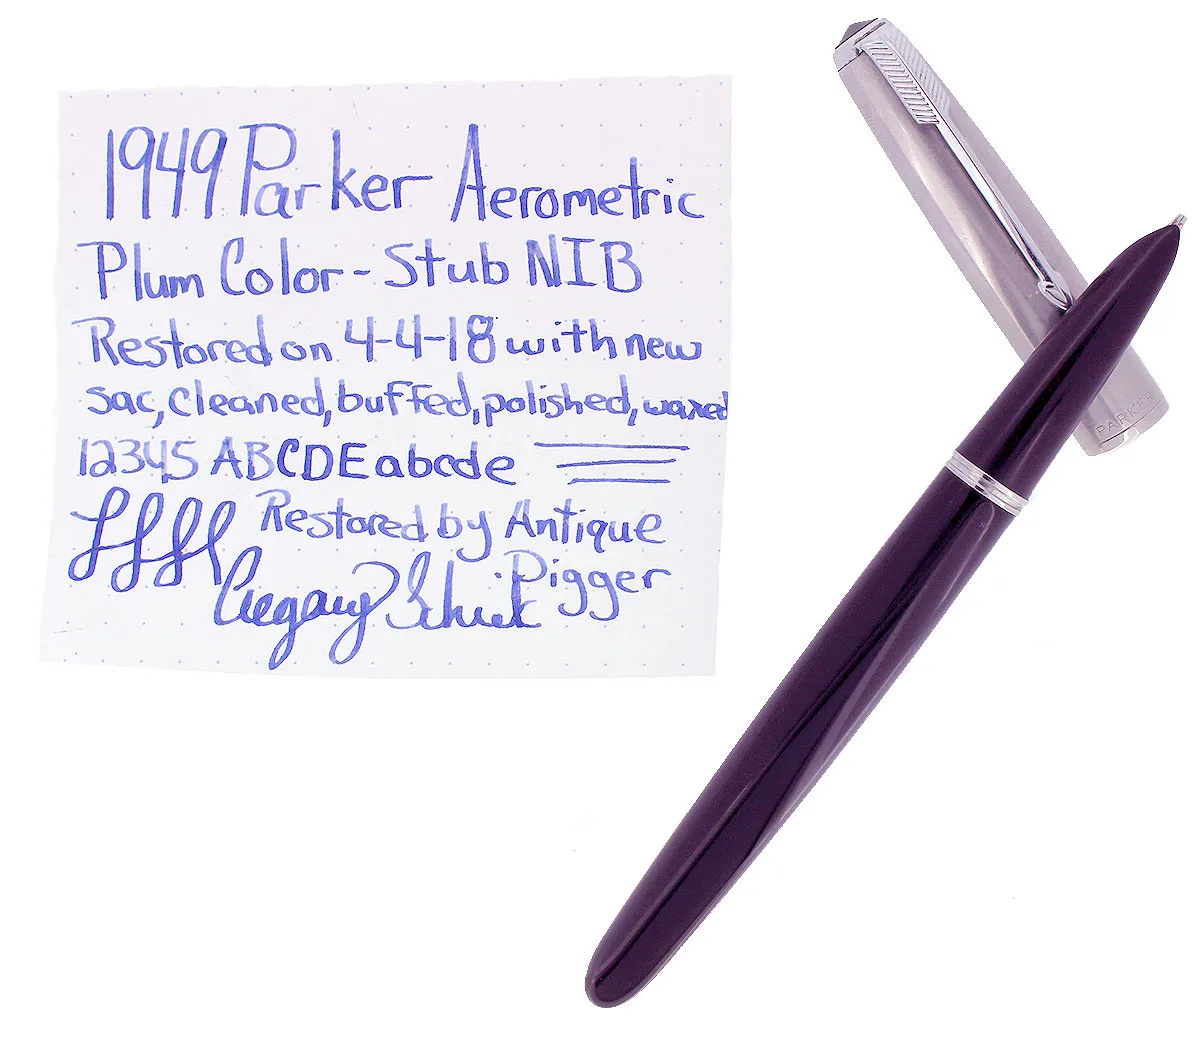 1949 Parker Aerometric
Plum Color - Stub NIB
Restored on 4-4-18 with new
sac, cleaned, buffed, polished, waxed
12345 ABCDE abcde
Restored by Antique
Digger
PARKER